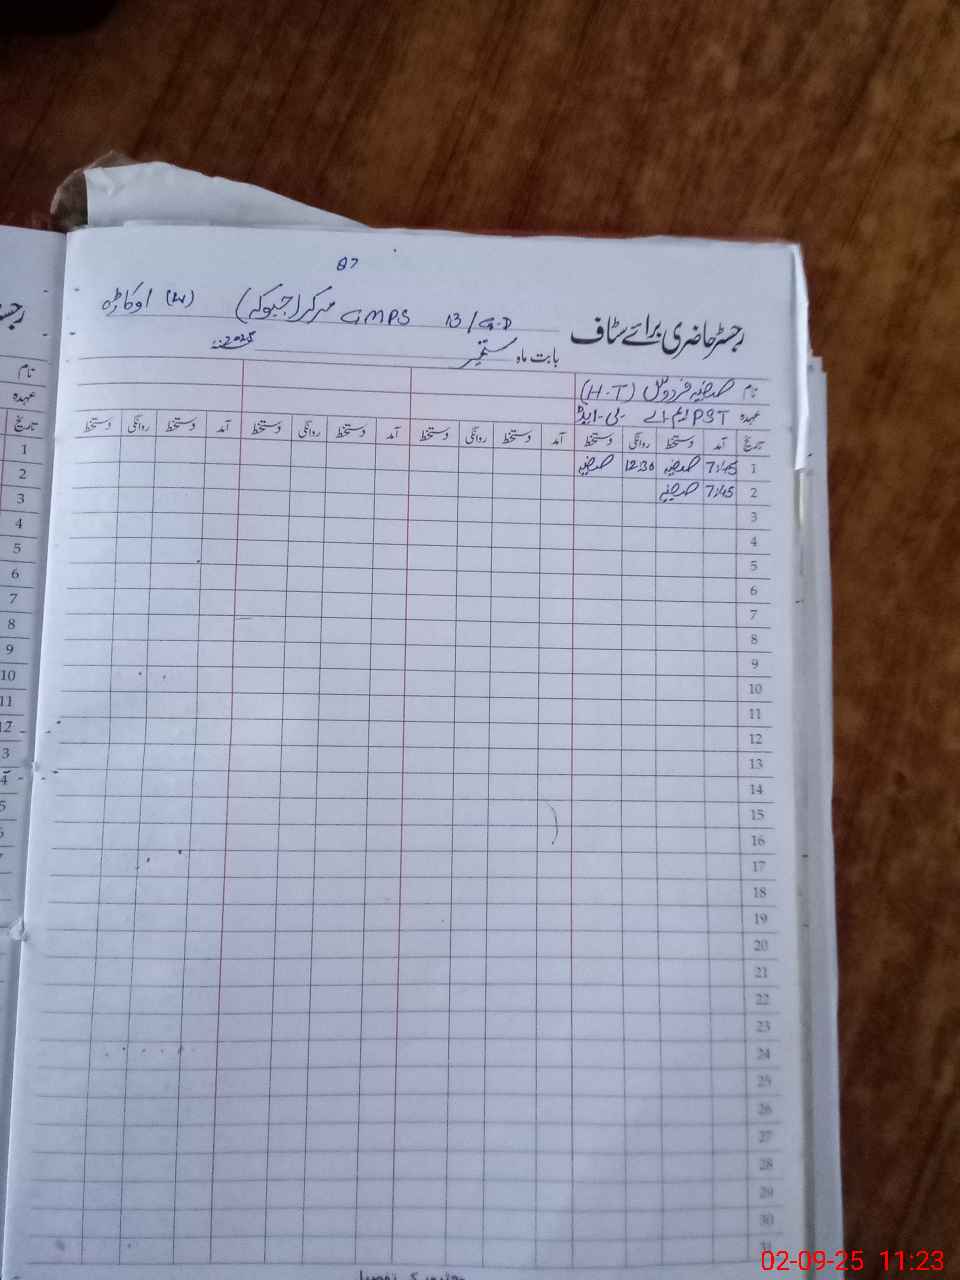 87
رجسٹر حاضری برائے سٹاف GMPS 13/G.D مرکز (جبوکہ) اوکاڑہ
بابت ماہ ستمبر 2025
نام صفیہ فردوس (H.T)
عہدہ PST ایم۔اے بی۔ایڈ
تاریخ آمد دستخط روانگی دستخط آمد دستخط روانگی دستخط آمد دستخط روانگی دستخط آمد دستخط روانگی دستخط
1 7:45 صفیہ 12:30 صفیہ
2 7:45 صفیہ
3
4
5
6
7
8
9
10
11
12
13
14
15
16
17
18
19
20
21
22
23
24
25
26
27
28
29
30
31
نام
عہدہ
تاریخ
1
2
3
4
5
6
7
8
9
10
11
12
02-09-25 11:23